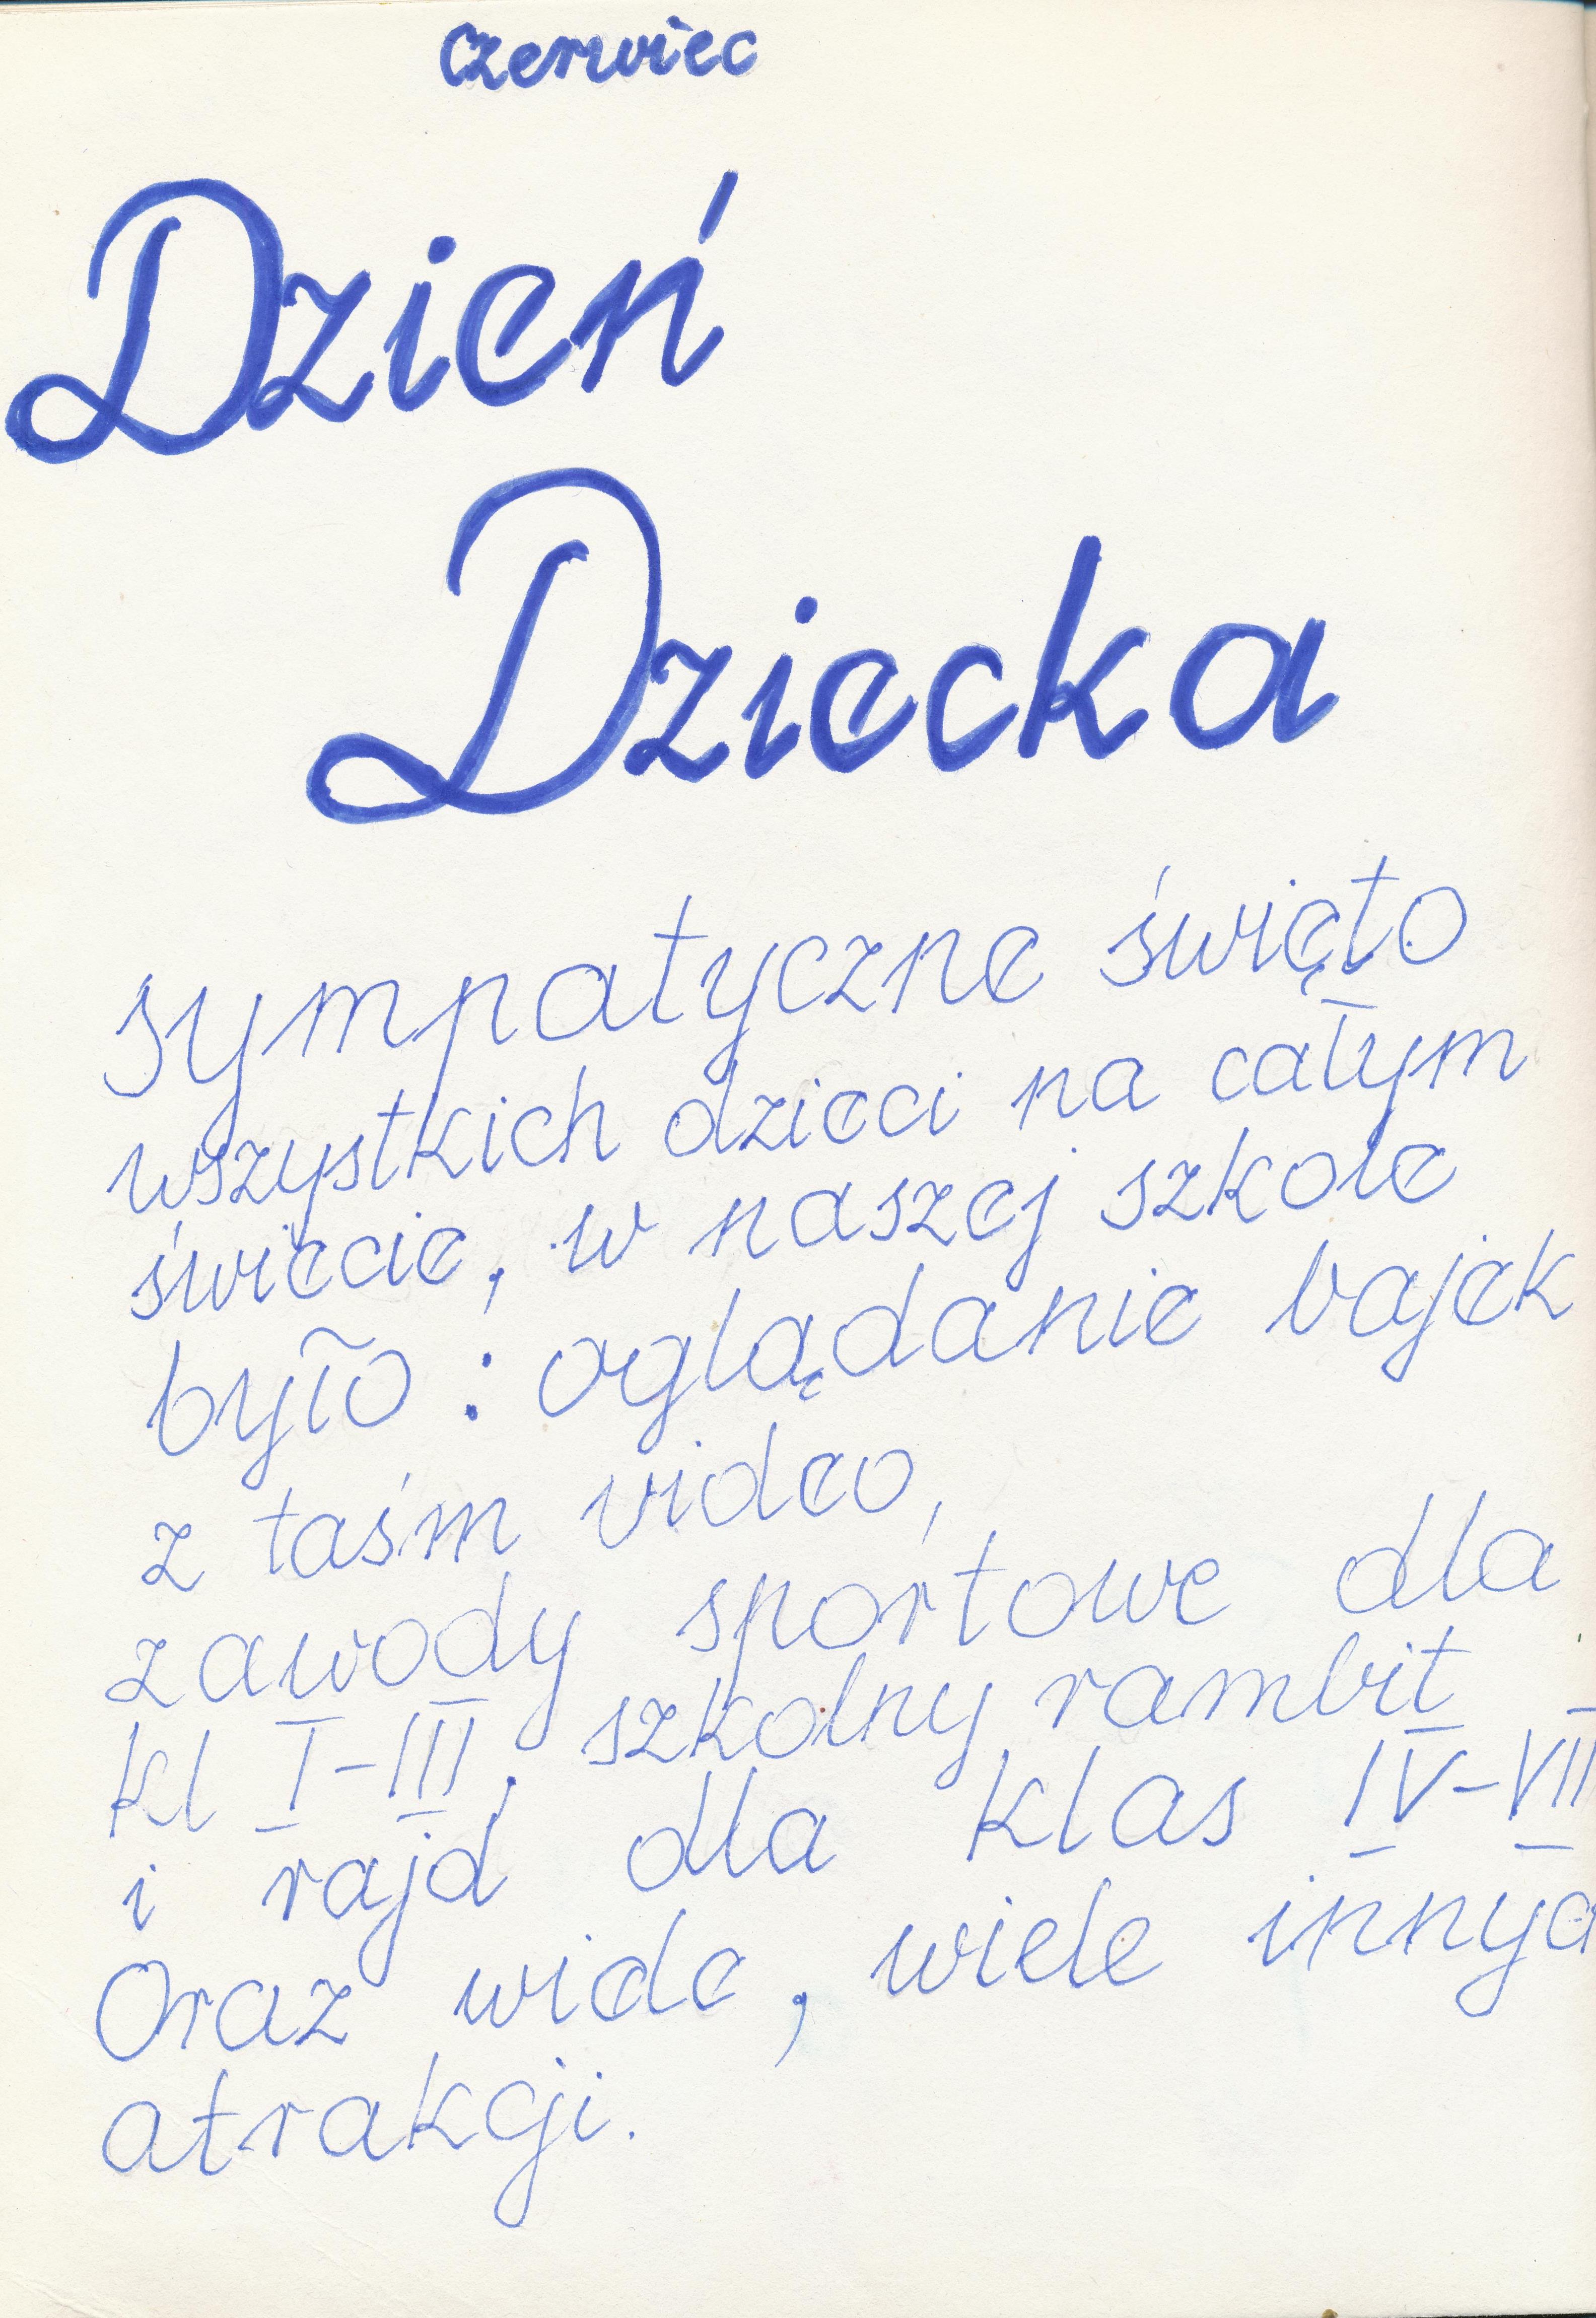 czerwiec
Dzień
Dziecka
sympatyczne święto
wszystkich dzieci na całym
świecie, w naszej szkole
było : oglądanie bajek
z taśm video,
zawody sportowe dla
kl I-III, szkolny rambit
i rajd dla klas IV-VII
Oraz wiele, wiele innyc
atrakcji.